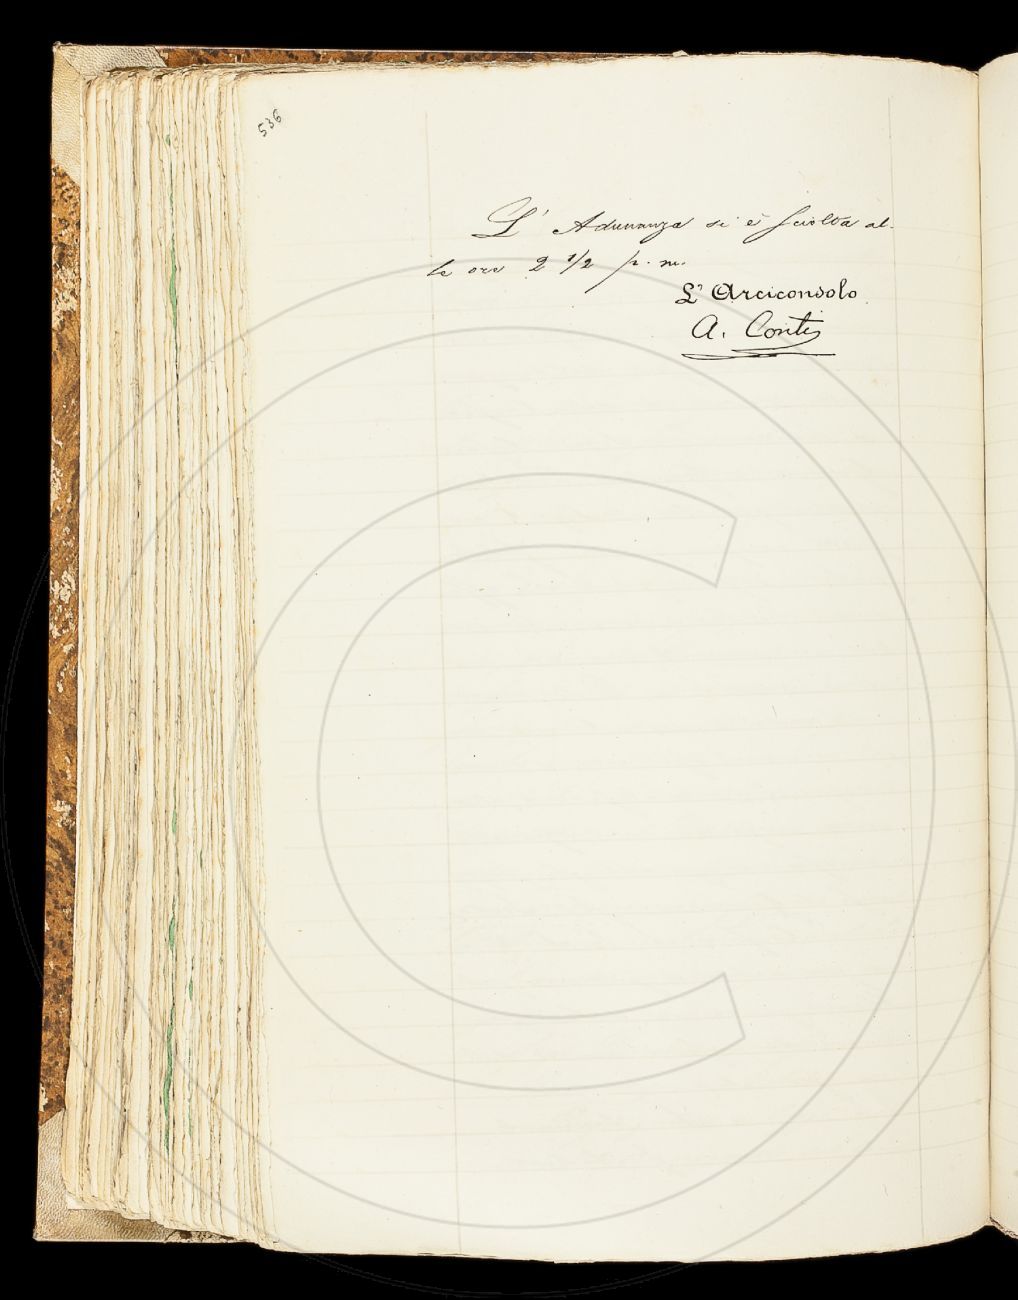 536
L' Adunanza si è sciolta al-
le ore 2 1/2 p. m.
L' Arciconsolo
A. Conti